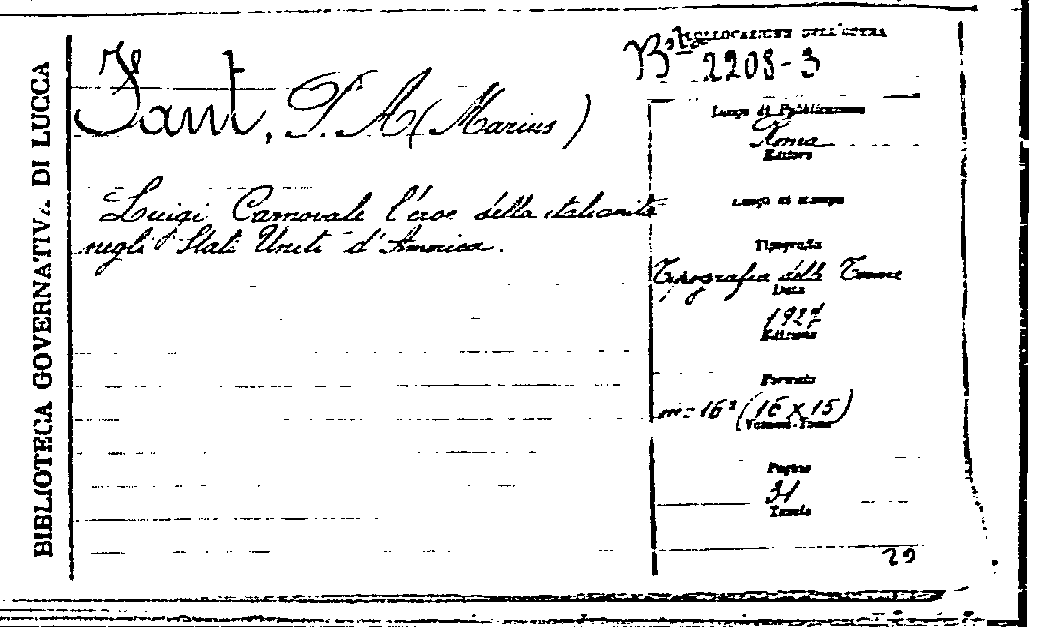 BIBLIOTECA GOVERNATIVA DI LUCCA
COLLOCAZIONE DELL'OPERA
Bta 2208-3
Fant, P. A (Marius)
Luigi Carnovale l'eroe della italianità
negli Stati Uniti d'America.
Luogo di Pubblicazione
Roma
Editore
Luogo di stampa
Tipografia
Tipografia delle Terme
Data
1927
Edizione
Formato
in-16° (16 x 15)
Volumi-Tomi
Pagine
31
Tavole
29